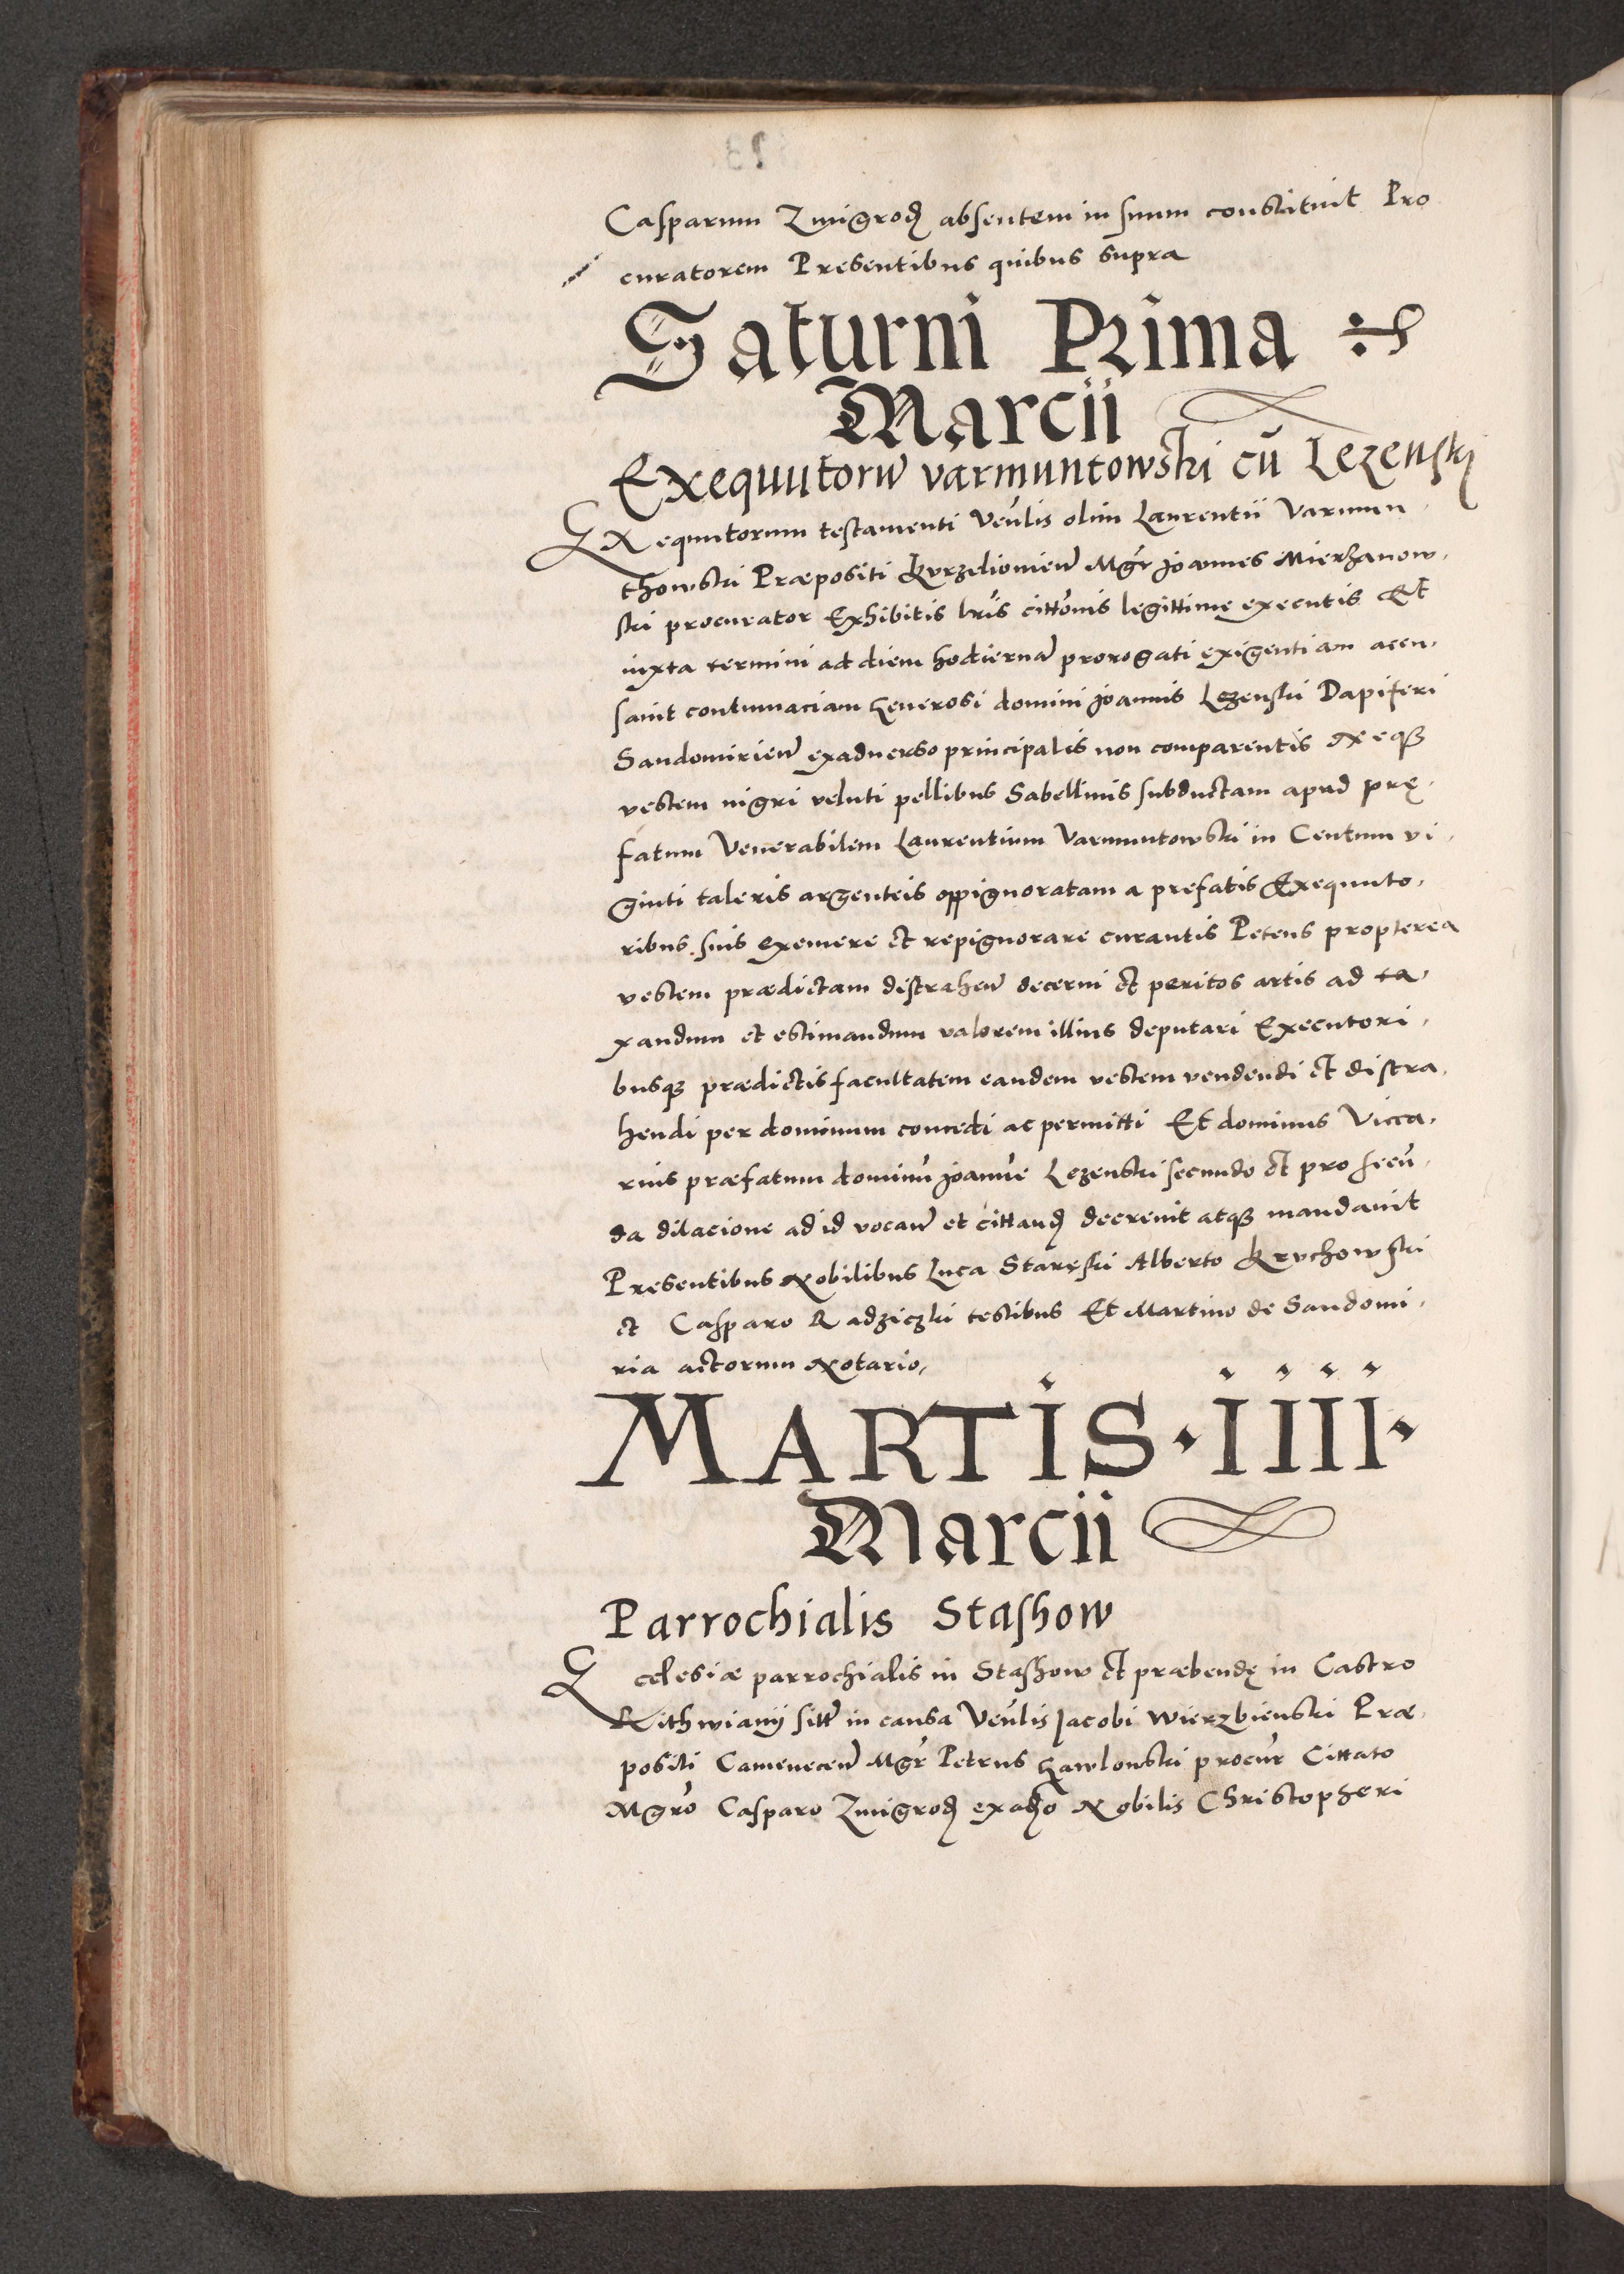 Casparum Zmigrod absentem in suum constituit Pro
curatorem Presentibus quibus supra
Saturni Prima
Marcii
Exequutorum varmuntowski cū Lezenski
Exequutorum testamenti Venlis olim Laurentii Varmun
thowski Præpositi Kurzelionien Mgr Joannes Mierzanow
ski procurator Exhibitis lris cittonis legittime executis Et
iuxta termini ad diem hodiernā prorogati exigentiam accu
sauit contumaciam generosi domini Joannis Lezenski Dapiferi
Sandomirien exaduerso principalis non comparentis Nequ
vestem nigri veluti pellibus Sabellinis subductam apud prę
fatum Venerabilem Laurentium Varmuntowski in Centum vi
ginti taleris argenteis oppignoratam a prefatis Exequuto
ribus suis exemere et repignorare curantis Petens propterea
vestem prædictam distrahen decerni et peritos artis ad ta
xandum et estimandum valorem illius deputari Executori
busq prædictis facultatem eandem vestem vendendi et distra
hendi per dominum concedi ac permitti Et dominus Vicca
rius præfatum dominū Joannē Lezenski secundo et pro secū
da dilacione ad id vocan et cittand decreuit atq mandauit
Presentibus Nobilibus Luca Staręski Alberto Kruchowski
et Casparo Radziczki testibus Et Martino de Sandomi
ria actorum Notario,
MARTIS · IIII ·
Marcii
Parrochialis Stashow
Ecclesiæ parrochialis in Stashow et præbendę in Castro
Rithwiany sitt in causa Venlis Jacobi Wierzbienski Præ
positi Camenecen Mgr Petrus Gawlowski procur Cittato
Mgro Casparo Zmigrod exado Nobilis Christopheri